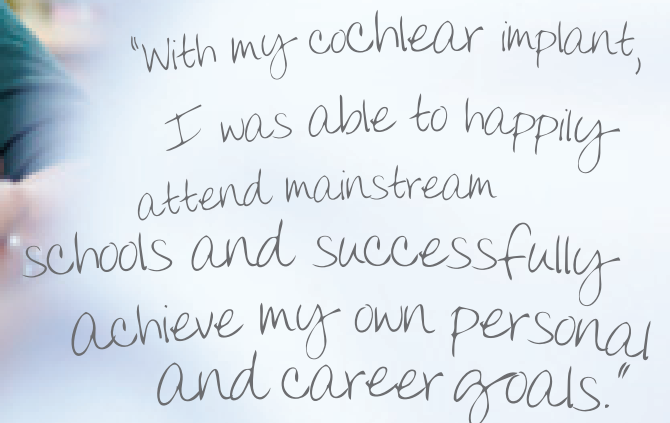 "With my cochlear implant,
I was able to happily
attend mainstream
schools and successfully
achieve my own personal
and career goals."